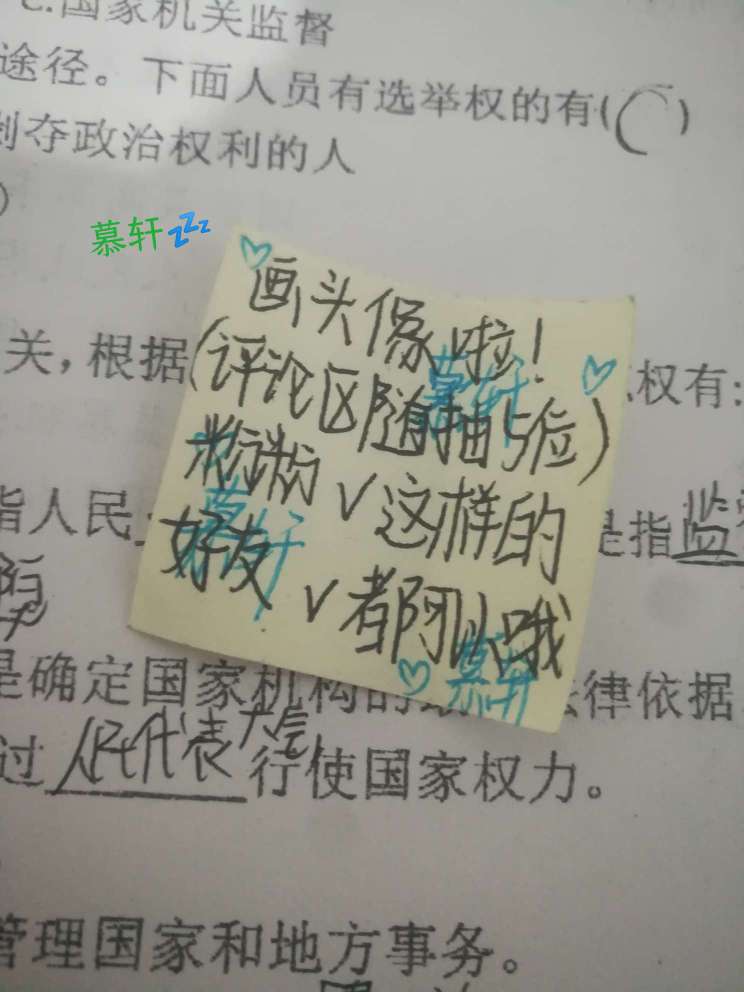 C.国家机关监督
途径。下面人员有选举权的有(C)
剥夺政治权利的人
)
慕轩
画头像啦!
关,根据
(评论区随抽5位)
慕轩
权有:
粉粉 ∨ 这样的
指人民
是指监
好友 ∨ 都阿以哦
慕轩
慕轩
是确定国家机构的
法律依据
过人民代表大会行使国家权力。
管理国家和地方事务。